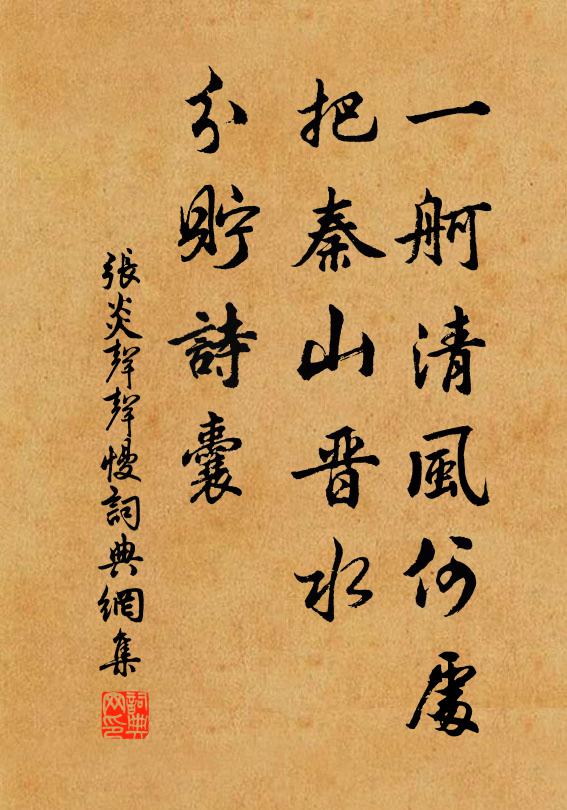 一舸清風何處
把秦山晋水
分貯詩囊
張炎聲聲慢詞典網集
詞典網印